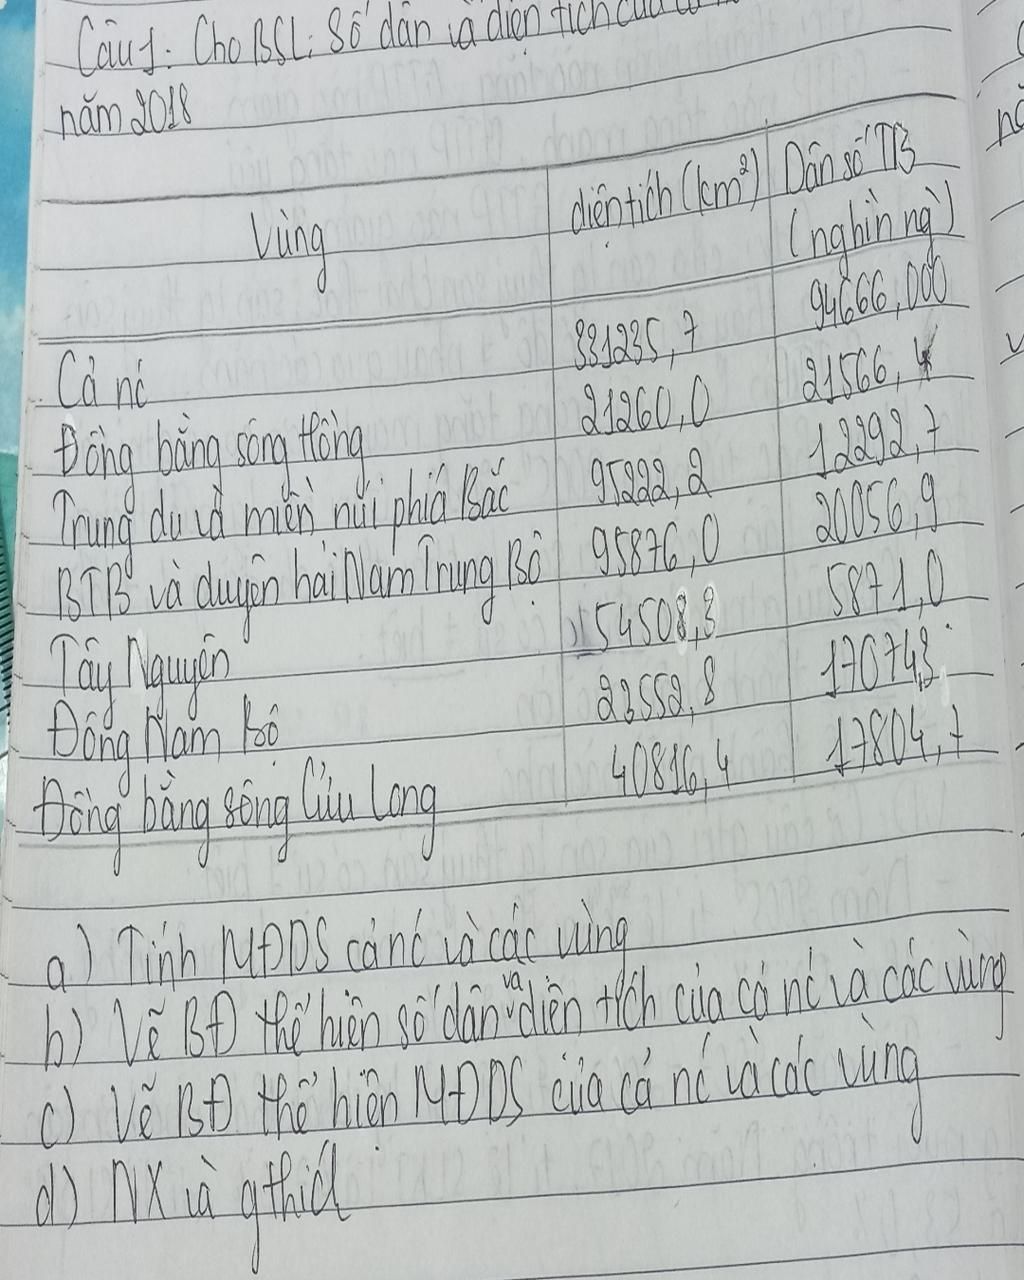 Câu 1: Cho BSL: Số dân và diện tích của
năm 2018
Vùng diện tích (km²) Dân số TB
(nghìn ng`)
Cả nc 331235,7 94666,000
Đồng bằng sông Hồng 21260,0 21566,4
Trung du và miền núi phía Bắc 95222,2 12292,7
BTB và duyên hải Nam Trung Bộ 95876,0 20056,9
Tây Nguyên 54508,3 5871,0
Đông Nam Bộ 23552,8 17074,3
Đồng bằng sông Cửu Long 40816,4 17804,7
a) Tính MĐDS cả nc và các vùng
b) Vẽ BĐ thể hiện số dân và diện tích của cả nc và các vùng
c) Vẽ BĐ thể hiện MĐDS của cả nc và các vùng
d) NX và gthích